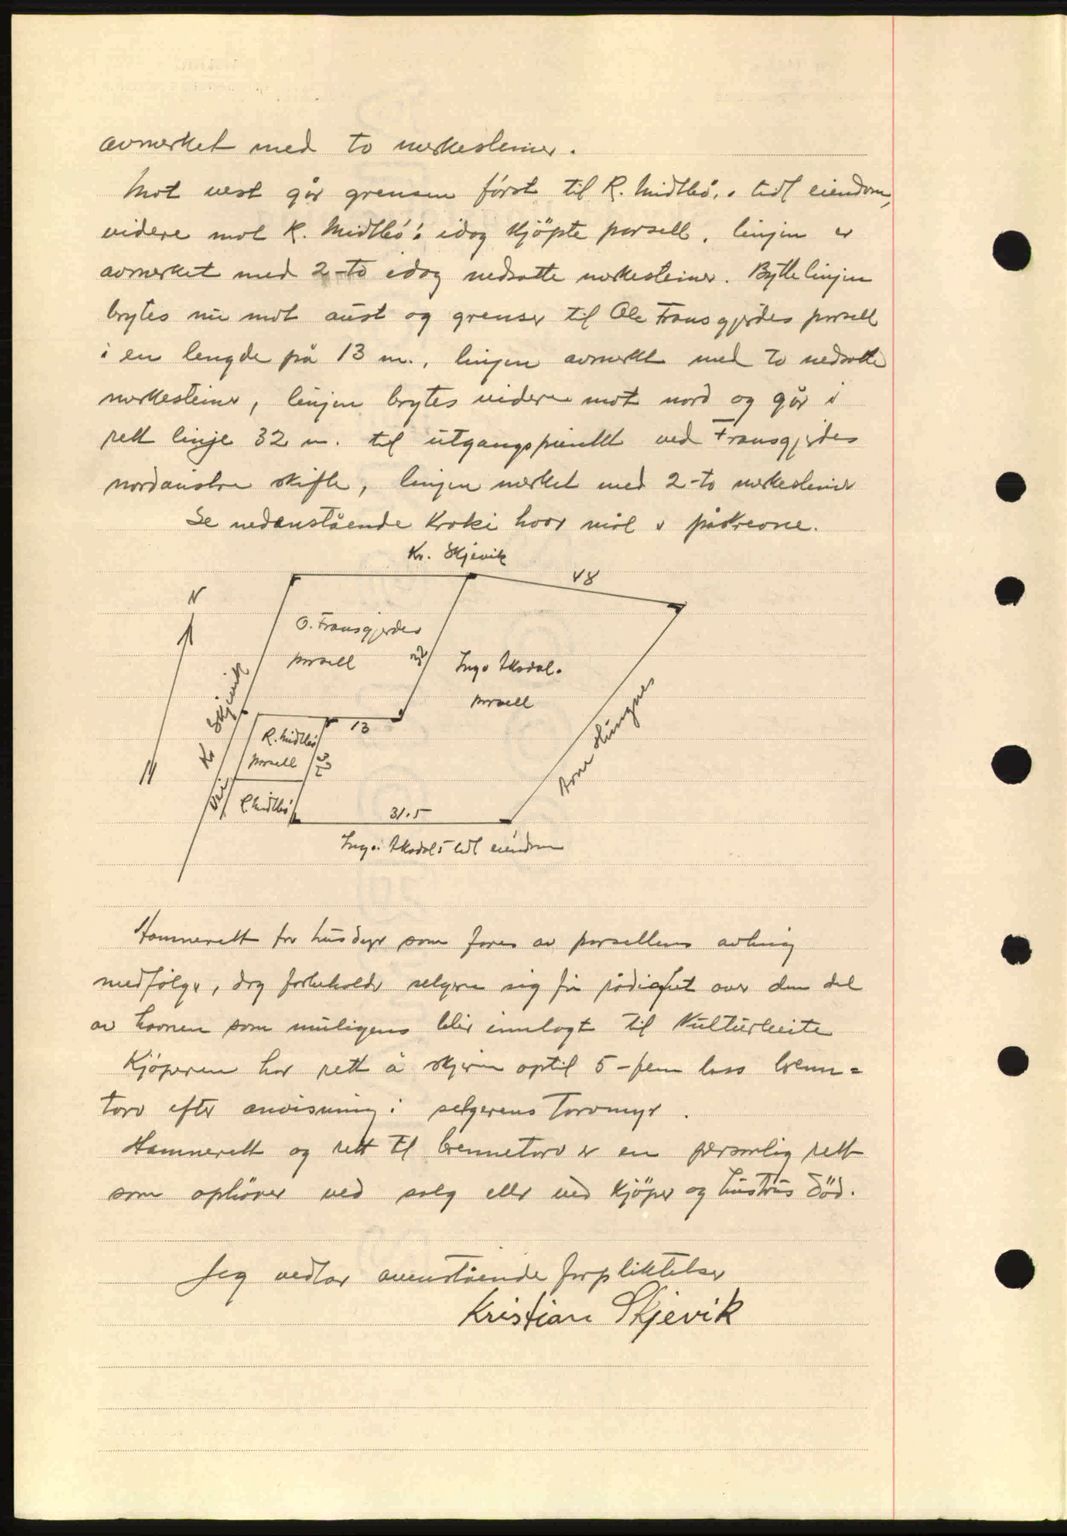 avmerket med to merkesteiner.
Mot vest går grensen først til R. Midtbö's tidl eiendom,
videre mot R. Midtbö's idag kjöpte parsell. linjen er
avmerket med 2-to idag nedsatte merkesteiner. Byttelinjen
brytes nu mot aust og grenser til Ole Fransgjerdes parsell
i en lengde på 13 m., linjen avmerkt med to nedsatte
merkesteiner, linjen brytes videre mot nord og går i
rett linje 32 m. til utgangspunktt ved Fransgjerdes
nordaustre skifte, linjen merket med 2-to merkesteiner
Se nedenstående kroki hvor mål er påskrevne.
Kr. Skjevik
48
N
O. Fransgjerdes
parsell
32
Inge
parsell
Kr Skjevik
13
R. Midtbö
parsell
Arne Hungnes
Vei
R. Midtbö
31.5
tidl eiendom
Hamnerett for husdyr som fores av parsellens avling
medfølger, dog forbeholder selgeren sig fri rådighet over den del
av havnen som muligens blir innlagt til Kulturbeite
Kjøperen har rett å skjære optil 5-fem lass brenn=
torv efter anvisning i selgerens Torvmyr.
Hamnerett og rett til brennetorv er en personlig rett
som ophører ved salg eller ved kjöper og hustrus död.
Jeg vedtar ovenstående forpliktelser
Kristian Skjevik